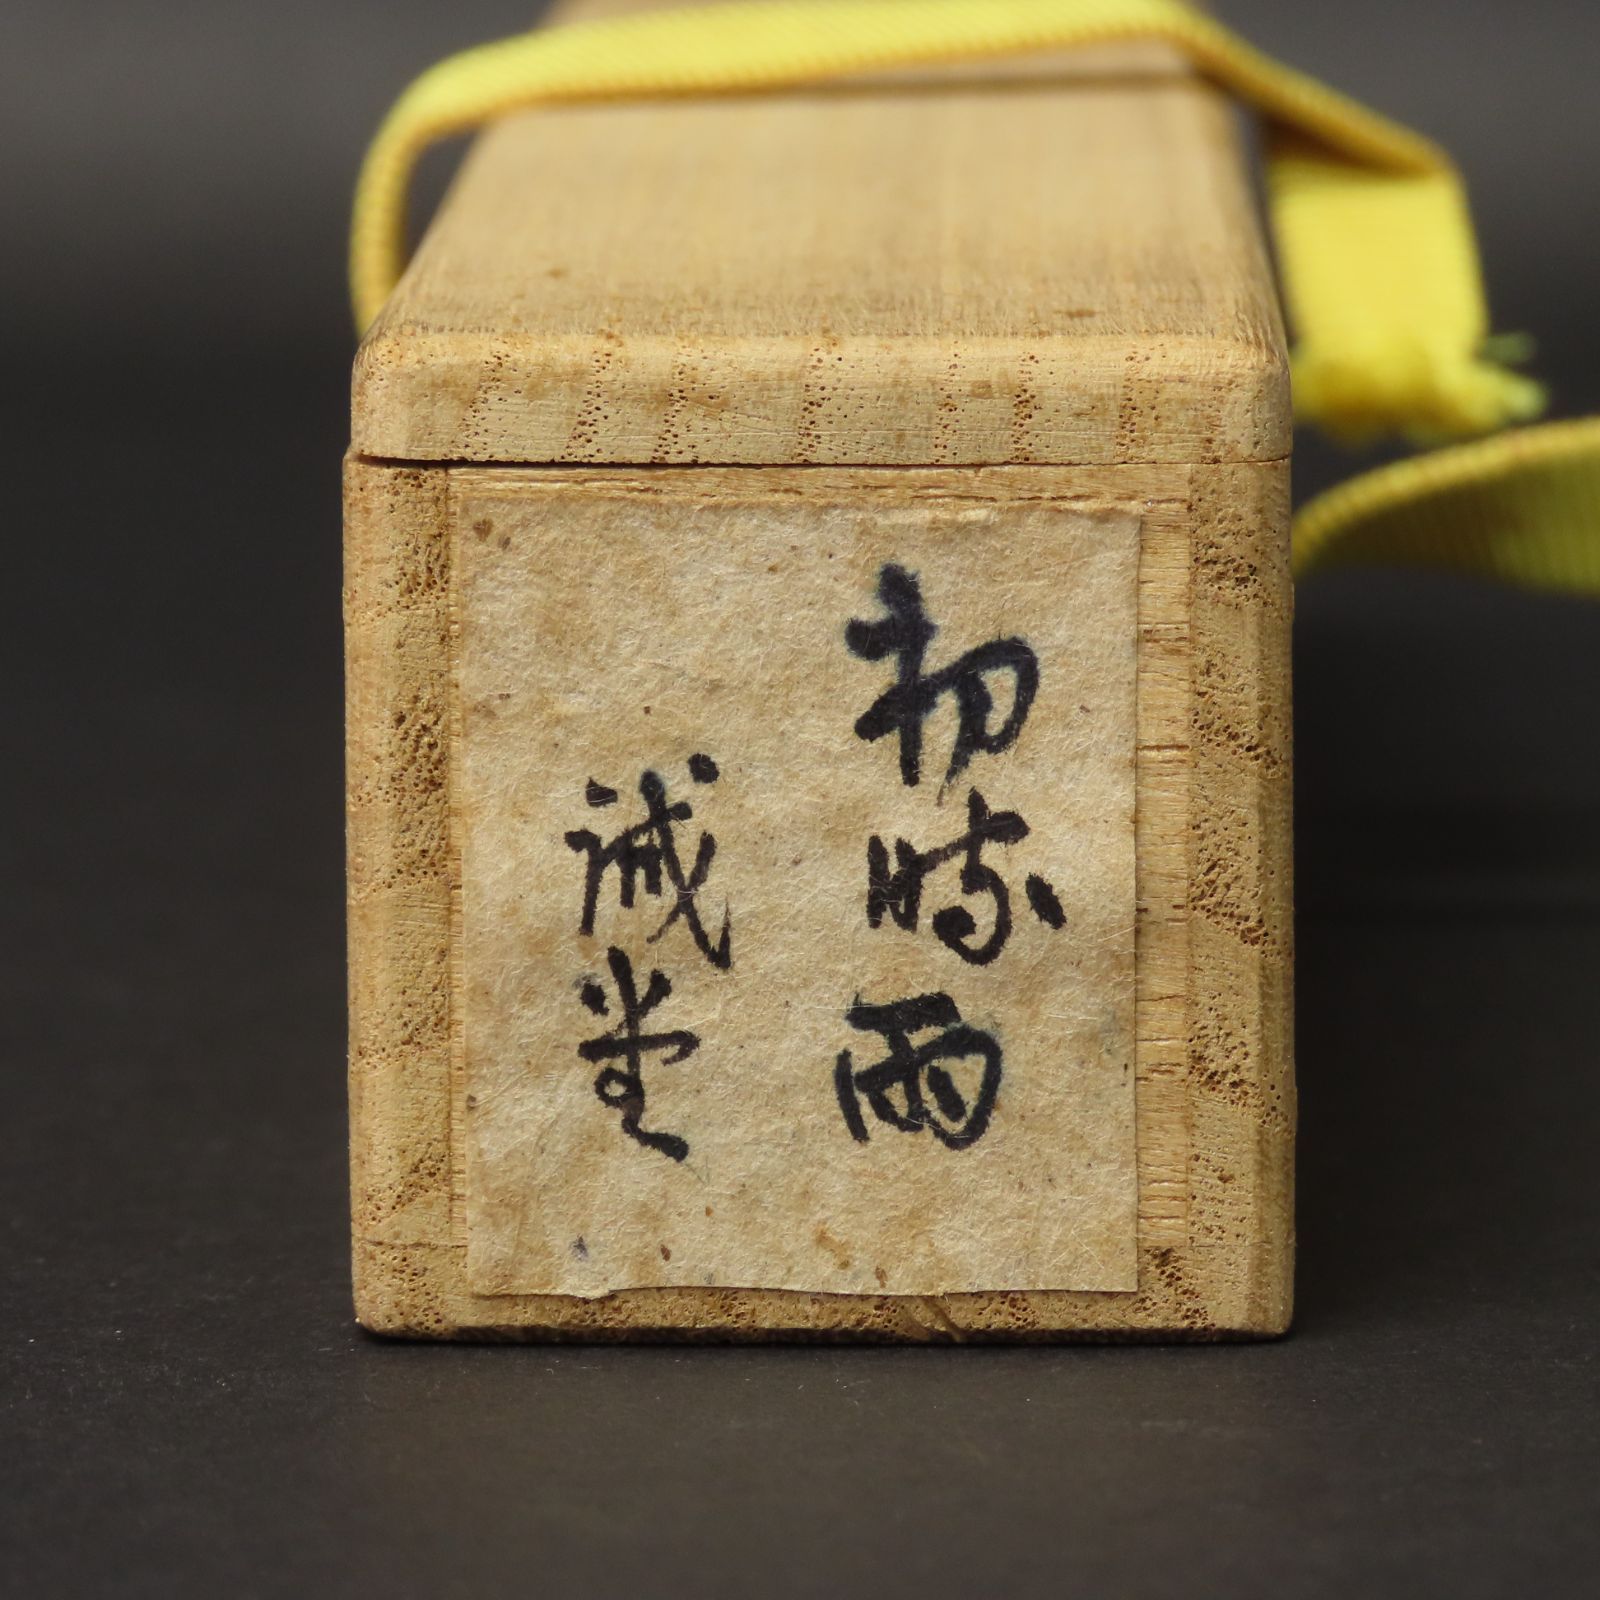 初時雨
誠堂